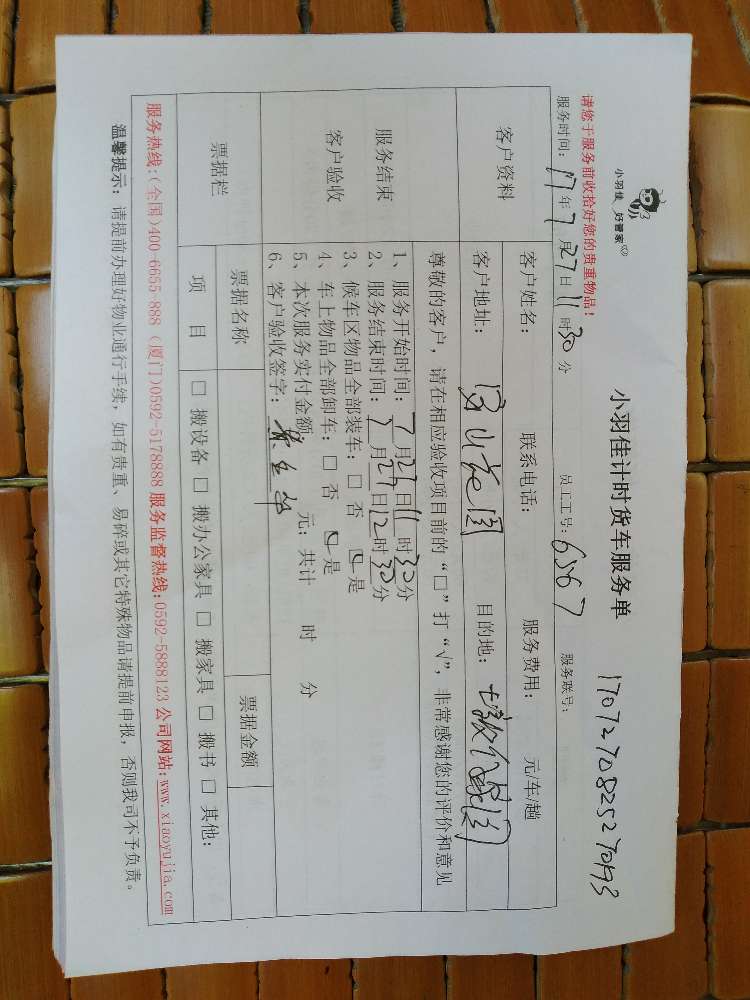 小羽佳 好管家
小羽佳计时货车服务单
1707270825270193
请您于服务前收拾好您的贵重物品！
服务时间：17年7月27日11时30分 员工工号：6567 服务联号：
客户资料
客户姓名： 联系电话： 服务费用： 元/车/趟
客户地址： 目的地：
服务结束
客户验收
尊敬的客户，请在相应验收项目前的“□”打“√”，非常感谢您的评价和意见
1、服务开始时间：7月27日11时30分
2、服务结束时间：7月27日12时30分
3、候车区物品全部装车：□ 否 ☑ 是
4、车上物品全部卸车：□ 否 ☑ 是
5、本次服务实付金额 元；共计 时 分
6、客户验收签字：
票据栏
票据名称 票据金额
项 目 □ 搬设备 □ 搬办公家具 □ 搬家具 □ 搬书 □ 其他：
服务热线：(全国)400-6655-888 (厦门)0592-5178888 服务监督热线：0592-5888123 公司网站：www.xiaoyujia.com
温馨提示：请提前办理好物业通行手续，如有贵重、易碎或其它特殊物品请提前申报，否则我司不予负责。